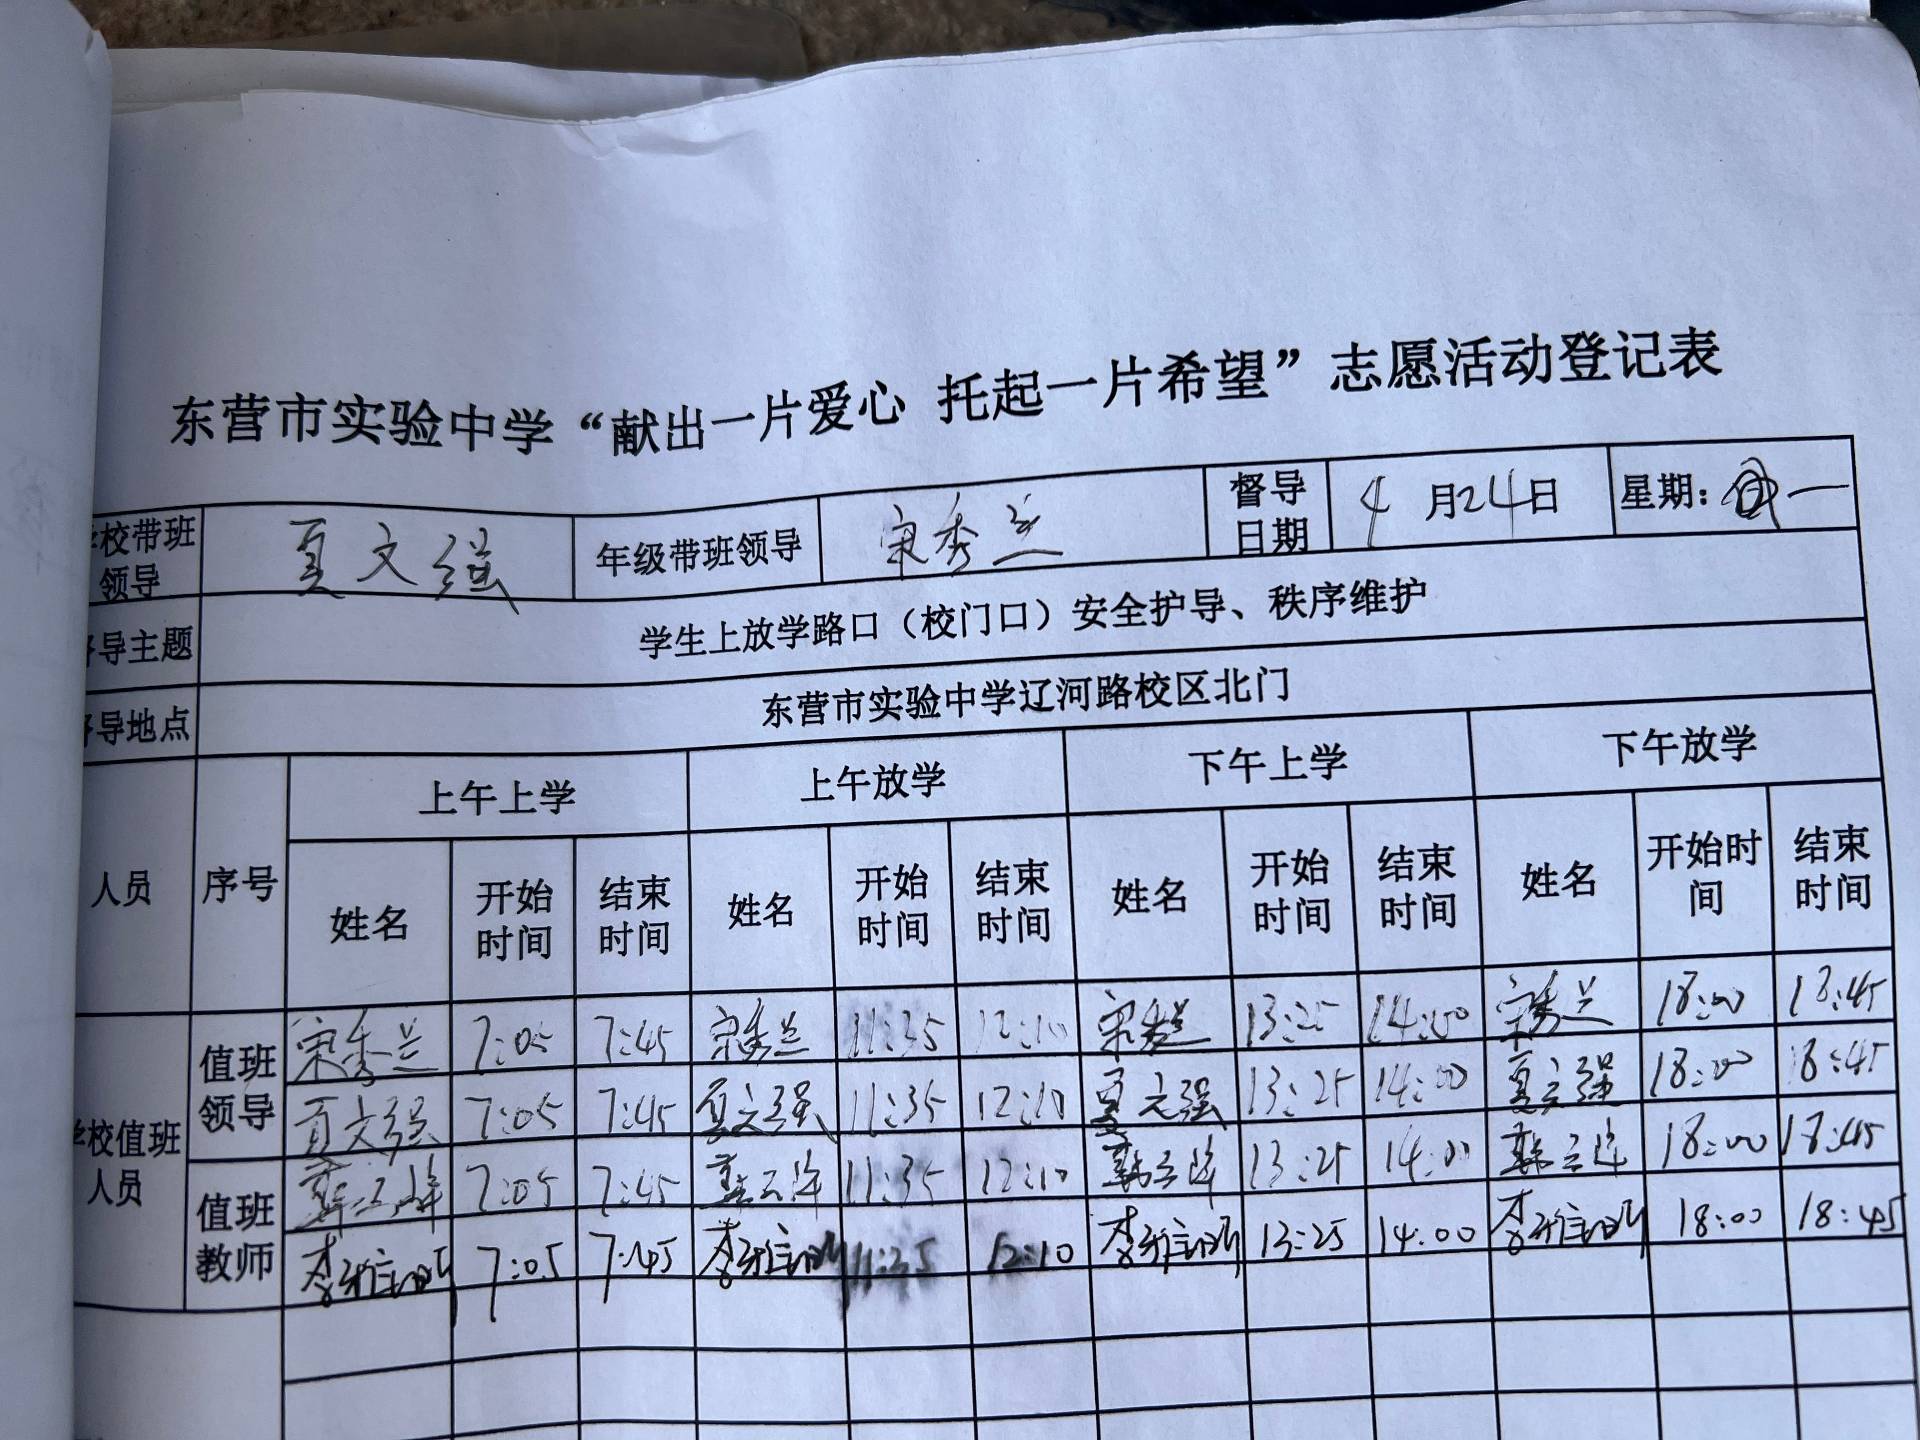 东营市实验中学“献出一片爱心 托起一片希望”志愿活动登记表
校带班领导 夏文强 年级带班领导 宋秀兰 督导日期 4月24日 星期: 一
导主题 学生上放学路口（校门口）安全护导、秩序维护
导地点 东营市实验中学辽河路校区北门
人员 序号 上午上学 上午放学 下午上学 下午放学
姓名 开始时间 结束时间 姓名 开始时间 结束时间 姓名 开始时间 结束时间 姓名 开始时间 结束时间
校值班人员
值班领导
宋秀兰 7:05 7:45 宋秀兰 11:35 12:10 宋秀兰 13:25 14:00 宋秀兰 18:00 18:45
夏文强 7:05 7:45 夏文强 11:35 12:10 夏文强 13:25 14:00 夏文强 18:00 18:45
值班教师
7:05 7:45 11:35 12:10 13:25 14:00 18:00 18:45
7:05 7:45 11:35 12:10 13:25 14:00 18:00 18:45